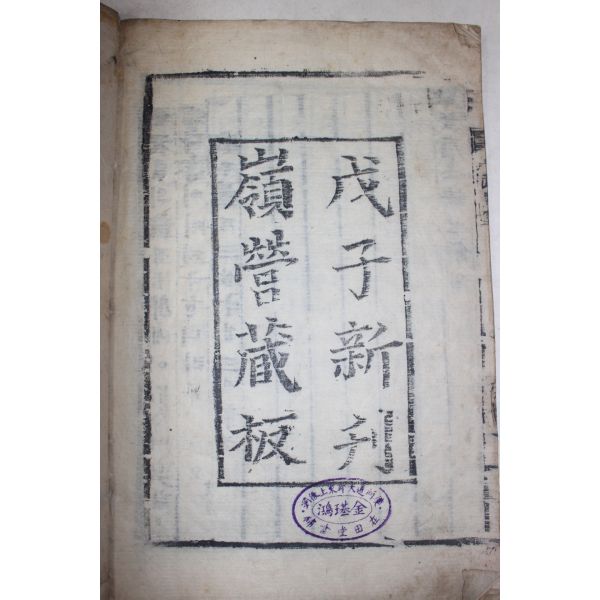 戊子新刊
嶺營藏板
金琪鴻